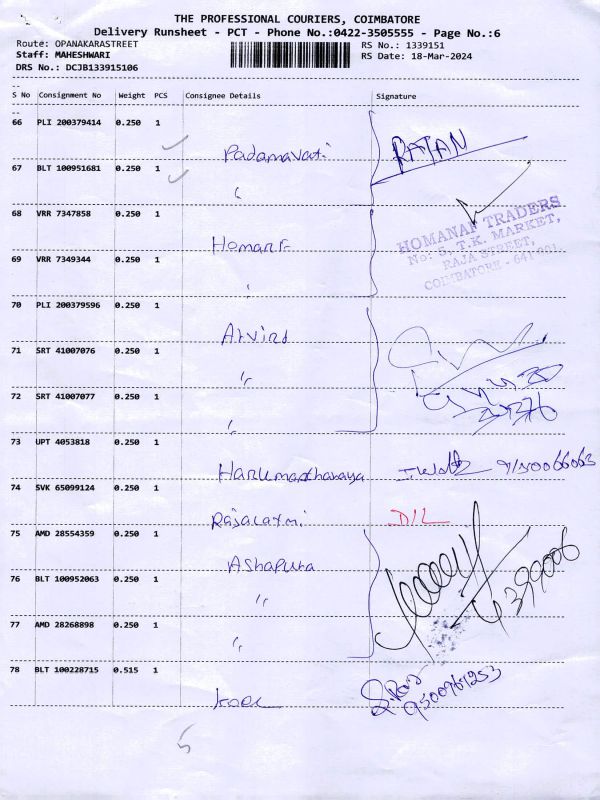 THE PROFESSIONAL COURIERS, COIMBATORE
Delivery Runsheet - PCT - Phone No.:0422-3505555 - Page No.:6
Route: OPANAKARASTREET RS No.: 1339151
Staff: MAHESHWARI RS Date: 18-Mar-2024
DRS No.: DCJB133915106
S No Consignment No Weight PCS Consignee Details Signature
66 PLI 200379414 0.250 1
Padamavati RAJAN
67 BLT 100951681 0.250 1
"
68 VRR 7347858 0.250 1
HOMANAF TRADERS
No: 5, T.K. MARKET,
RAJA STREET,
COIMBATORE - 641 001
69 VRR 7349344 0.250 1
"
70 PLI 200379596 0.250 1
Arvind
71 SRT 41007076 0.250 1
"
72 SRT 41007077 0.250 1
"
73 UPT 4053818 0.250 1
Hanumanthanaya 9150066063
74 SVK 65099124 0.250 1
Rajalaxmi D/L
75 AMD 28554359 0.250 1
Ashapura
76 BLT 100952063 0.250 1
"
77 AMD 28268898 0.250 1
"
78 BLT 100228715 0.515 1